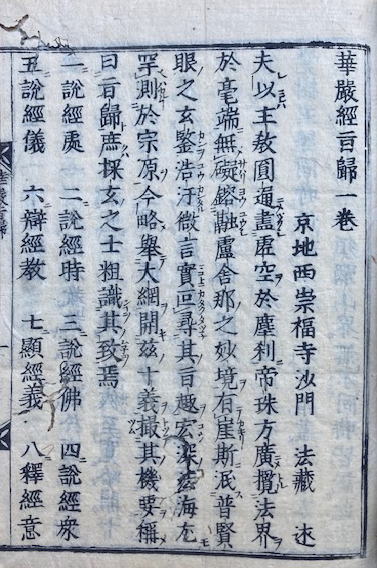 華嚴經旨歸一卷
京地西崇福寺沙門 法藏 述
夫以主教圓通盡虛空於塵刹帝珠方廣攝法界
於毫端無礙鎔融盧舍那之妙境有崖斯泯普賢
眼之玄鑒浩汗微言實叵尋其旨趣宏深茲海尤
罕測於宗原今略舉大綱開茲十義撮其機要稱
曰旨歸庶採玄之士粗識其致焉
一說經處 二說經時 三說經佛 四說經衆
五說經儀 六辯經教 七顯經義 八釋經意